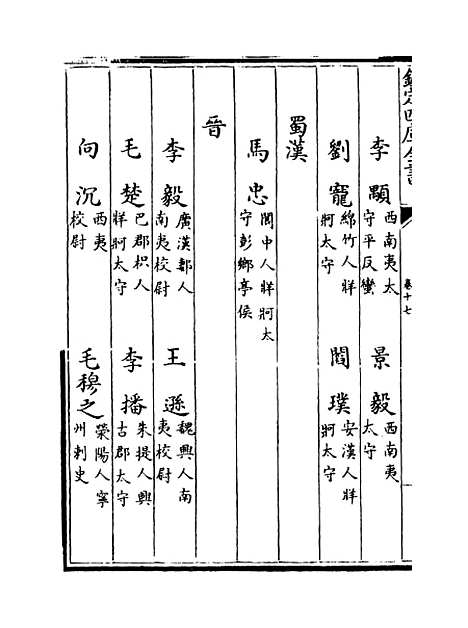 欽定四庫全書
卷十七
李顒 西南夷太守平反蠻
景毅 西南夷太守
劉寵 綿竹人牂牁太守
閻璞 安漢人牂牁太守
蜀漢
馬忠 閬中人牂牁太守彭鄉亭侯
晉
李毅 廣漢郪人南夷校尉
王遜 魏興人南夷校尉
毛楚 巴郡枳人牂牁太守
李播 朱提人興古郡太守
向沉 西夷校尉
毛穆之 滎陽人寧州刺史